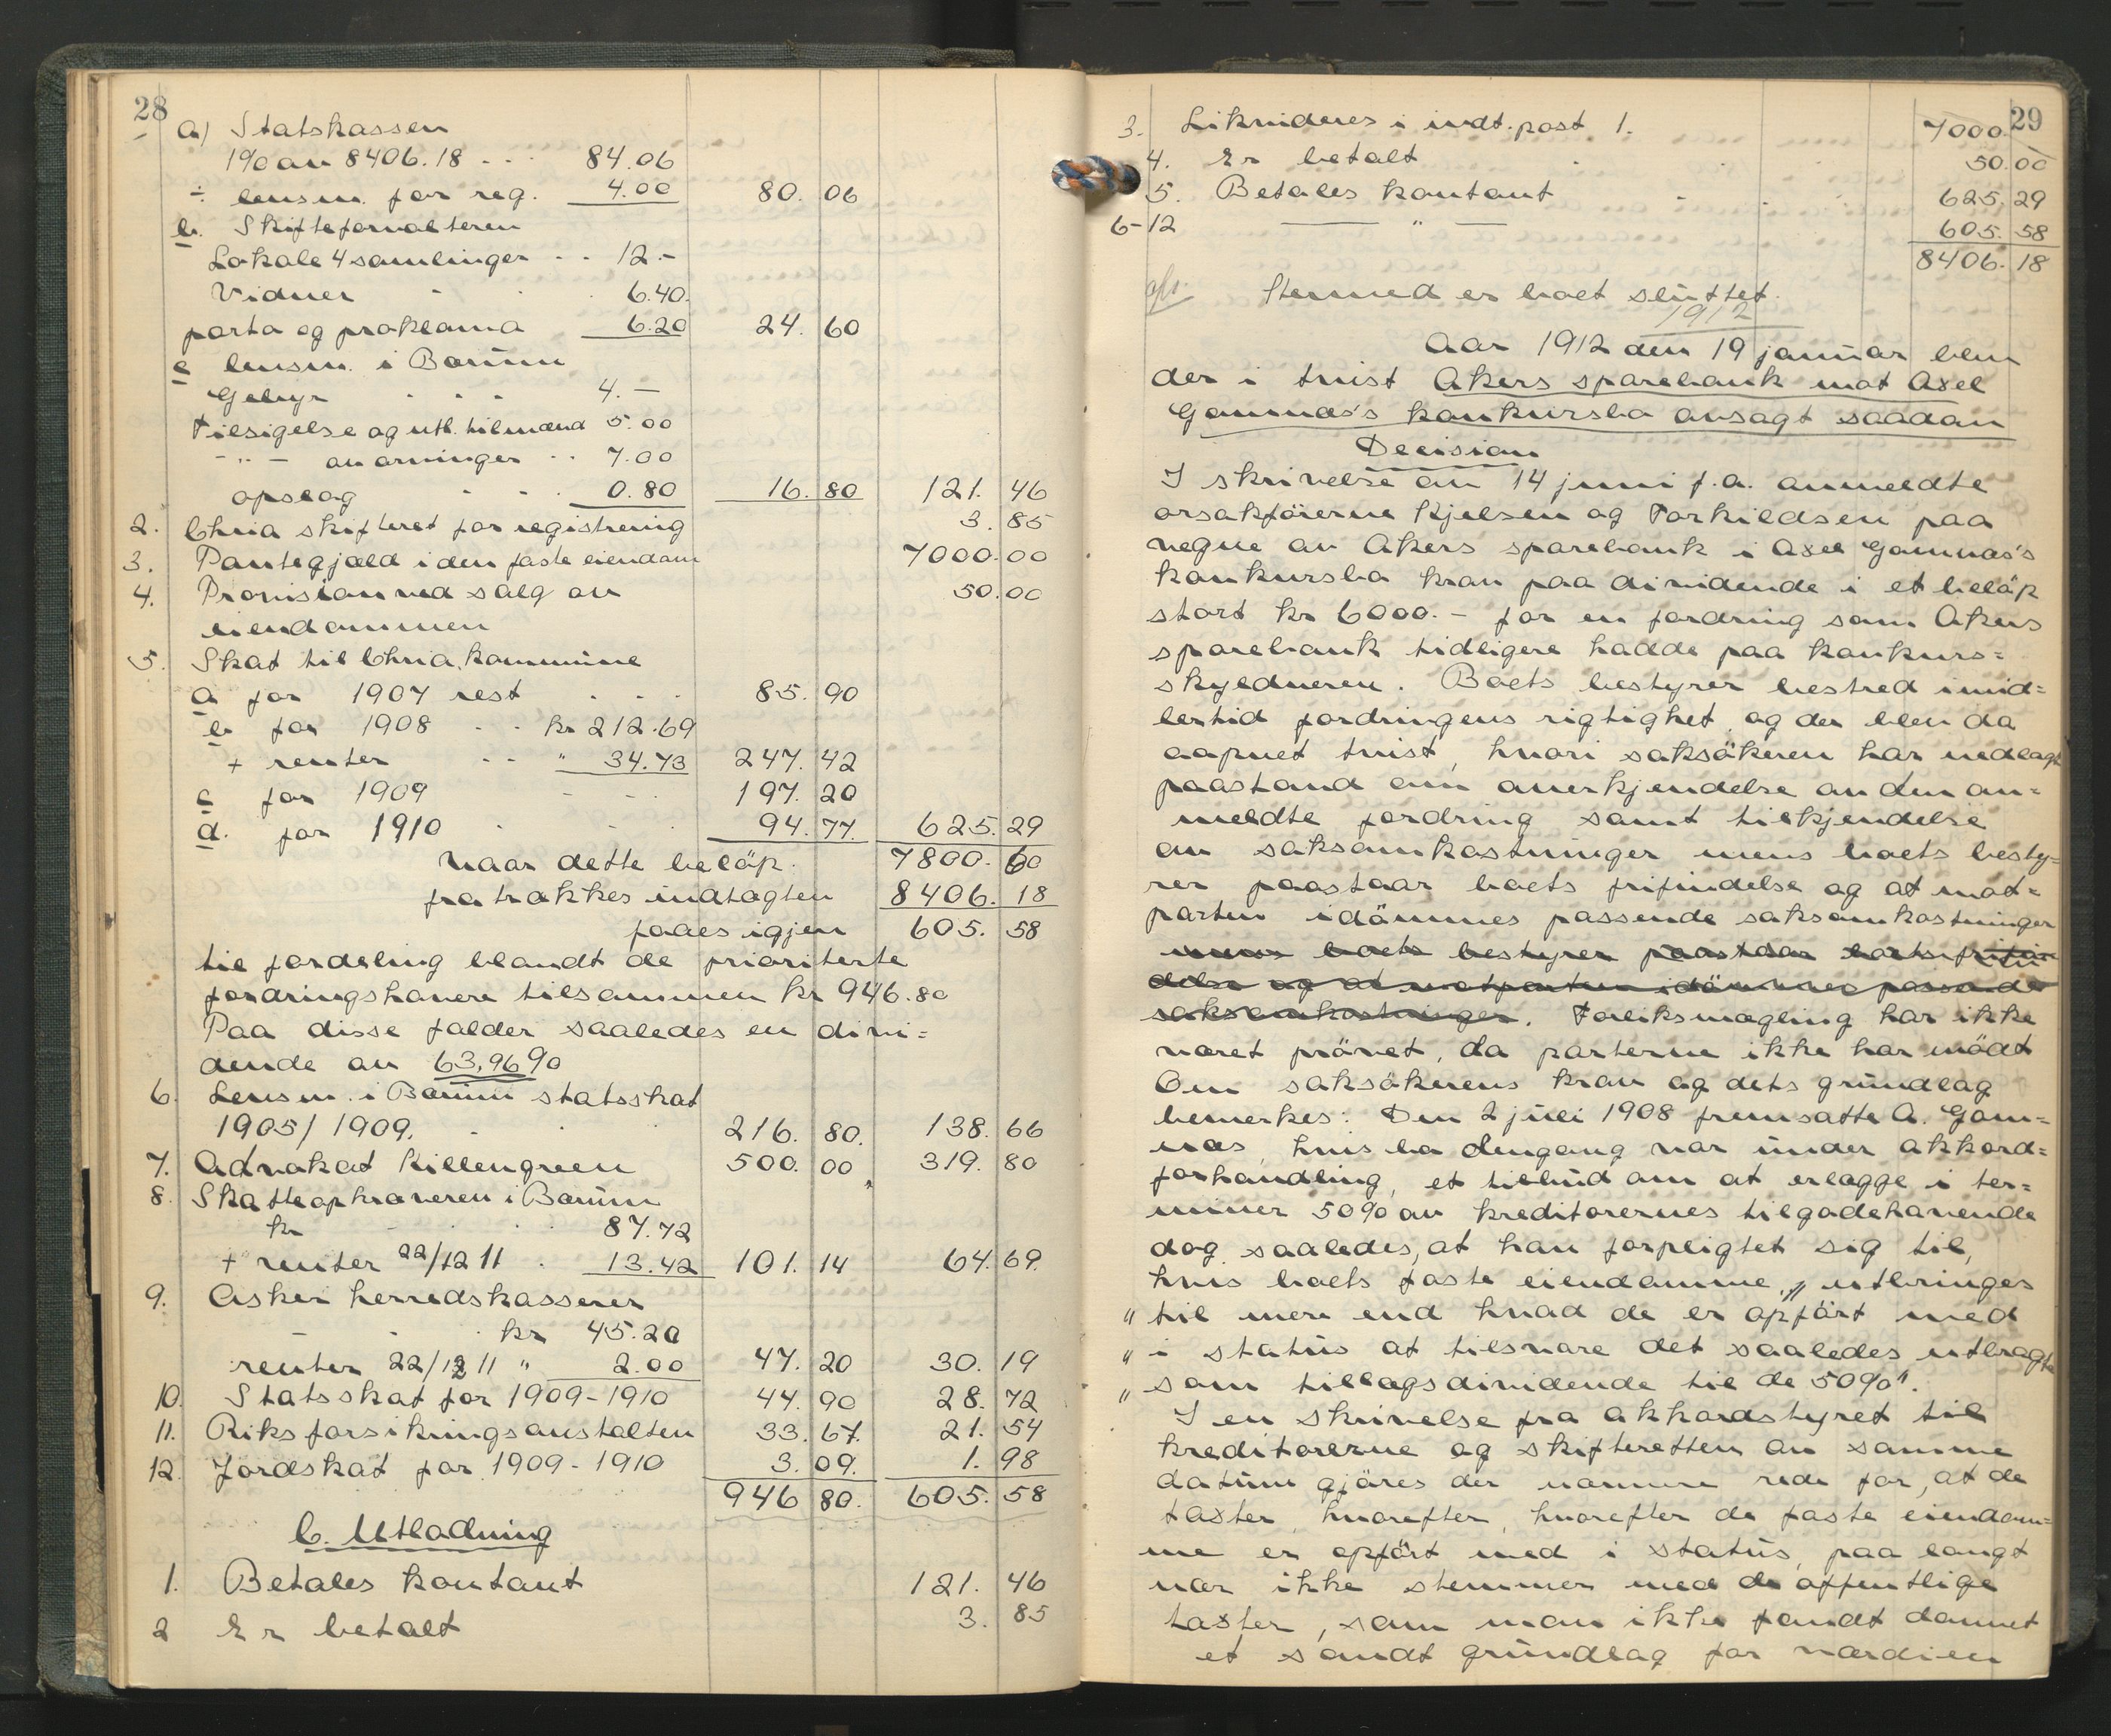 28
a) Statskassen
1% av 8406.18 - - - 84.06
÷ lensm. for reg. 4.00 80. 06
b. Skifteforvalteren
Lokale 4 samlinger - - 12.-
Vidner - . 6.40.
porto og proklama 6.20 24. 60
c lensm. i Bærum
Gebyr - - - 4. —
Tilsigelse og utl. tilmænd 5.00
- " - av arvinger - - 7.00
opslag - - . 0.80 16. 80 121. 46
2. Chria skifteret for registrering 3. 85
3. Pantegjæld i den faste eiendom 7000. 00
4. Provision ved salg av 50. 00
eiendommen
5. Skat til Chria. kommune
a for 1907 rest . - - 85. 90
b for 1908 - - kr 212.69
+ renter - - " 34.73 247. 42
c for 1909 - - - 197. 20
d. for 1910 . - - 94. 77. 625. 29
Naar dette beløp. 7800. 60
fratrækkes indtægten 8406. 18
faaes igjen 605. 58
til fordeling blandt de prioriterte
fordringshavere tilsammen kr 946.80
Paa disse falder saaledes en divi=
dende av 63,96%
6. Lensm. i Bærum statsskat
1905/1909. - . 216. 80. 138. 66
7. Advokat Killengreen 500. 00 319. 80
8. Skatteopkræveren i Bærum
kr - - . 87.72
+ renter 22/12 11 . 13.42 101. 14 64. 69.
9. Asker herredskasserer
- - . kr 45.20
renter 22/12 11 " 2.00 47. 20 30. 19
10. Statsskat for 1909-1910 44. 90 28. 72
11. Riksforsikringsanstalten 33. 67. 21. 54
12. Jordskat for 1909-1910 3. 09. 1. 98
946 80. 605. 58
C. Utlodning
1. Betales kontant 121. 46
2 Er betalt 3. 85
29
3. Likvideres i indt. post 1. 7000.
4. Er betalt . . . 50.00
5. Betales kontant - . . 625. 29
6-12 — " — 605. 58
8406. 18
Hermed er boet sluttet.
1912
Aar 1912 den 19 januar blev
der i tvist Akers sparebank mot Axel
Gamnæs's konkursbo avsagt saadan
Decision
I skrivelse av 14 juni f.a. anmeldte
orsakførerne Kjelsen og Torkildsen paa
vegne av Akers sparebank i Axel Gamnæs's
konkursbo krav paa dividende i et beløp
stort kr 6000.- for en fordring som Akers
sparebank tidligere hadde paa konkurs=
skyldneren. Boets bestyrer bestred imid=
lertid fordringens rigtighet, og der blev da
aapnet tvist, hvori saksøkeren har nedlagt
paastand om anerkjendelse av den an=
meldte fordring samt tilkjendelse
av saksomkostninger mens boets besty=
rer paastaar boets frifindelse og at mot=
parten idømmes passende saksomkostninger
mens boets bestyrer paastaar boets frifin
delse og at motparten idømmes passende
saksomkostninger. Forliksmægling har ikke
været prøvet, da parterne ikke har mødt
Om saksøkerens krav og dets grundlag
bemerkes: Den 2 juli 1908 fremsatte A. Gam=
næs, hvis bo dengang var under akkord=
forhandling, et tilbud om at erlægge i ter=
miner 50% av kreditorernes tilgodehavende
dog saaledes, at han forpligtet sig til,
hvis boets faste eiendomme, " utbringes
" til mere end hvad de er opført med
" i status at tilsvare det saaledes utbragte
" som tillægsdividende til de 50%".
I en skrivelse fra akkordstyret til
kreditorerne og skifteretten av samme
datum gjøres der nærmere rede for, at de
taxter, hvorefter, hvorefter de faste eiendom=
me er opført med i status, paa langt
nær ikke stemmer med de offentlige
taxter, som man ikke fandt dannet
et sandt grundlag for værdien